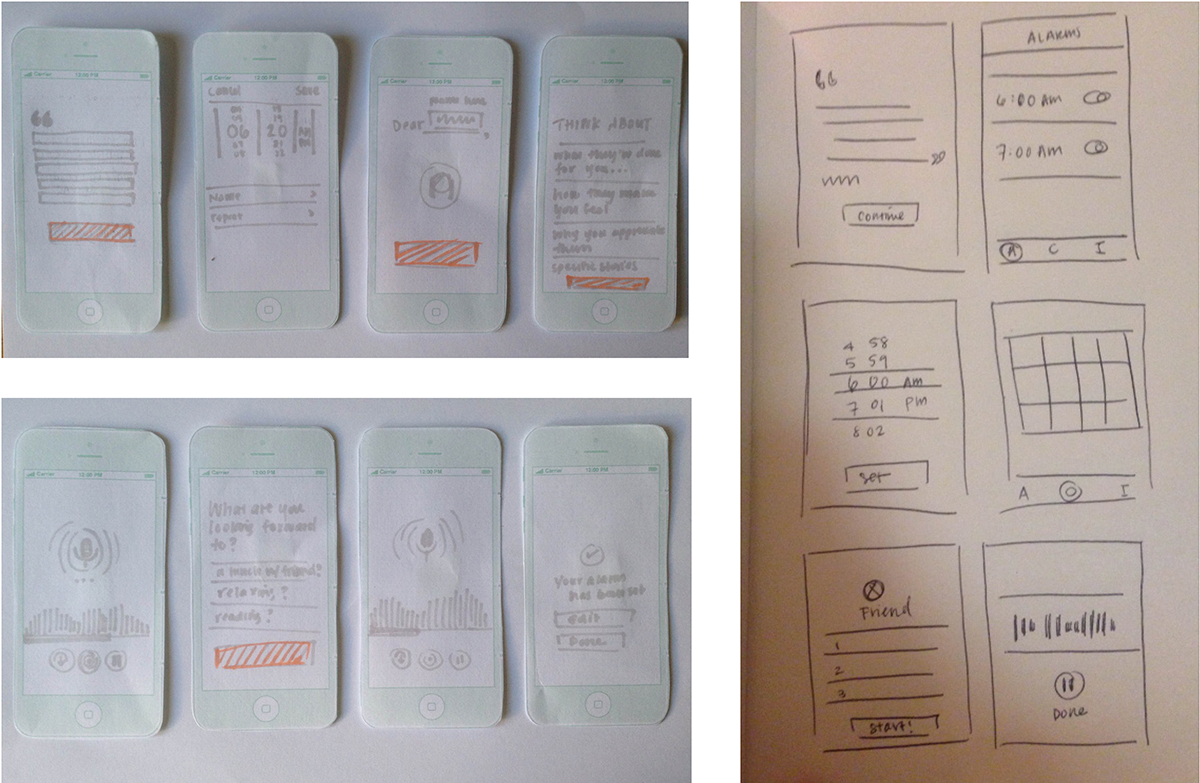 Carrier 12:00 PM
“
Carrier 12:00 PM
Cancel Save
06 20 AM
PM
Name >
repeat >
Carrier 12:00 PM
Dear ,
Carrier 12:00 PM
THINK ABOUT
what they've done
for you...
how they make
you feel
why you appreciate
them
specific stories
Carrier 12:00 PM
Carrier 12:00 PM
What are you
looking forward
to?
a lunch w/ friend?
relaxing?
reading?
Carrier 12:00 PM
Carrier 12:00 PM
Your Alarm
has been set
edit
Done
“
”
Continue
ALARMS
6:00 AM
7:00 AM
A C I
4 58
5 59
6 00 AM
7 01 PM
8 02
Set
A C I
Friend
1
2
3
Start!
Done